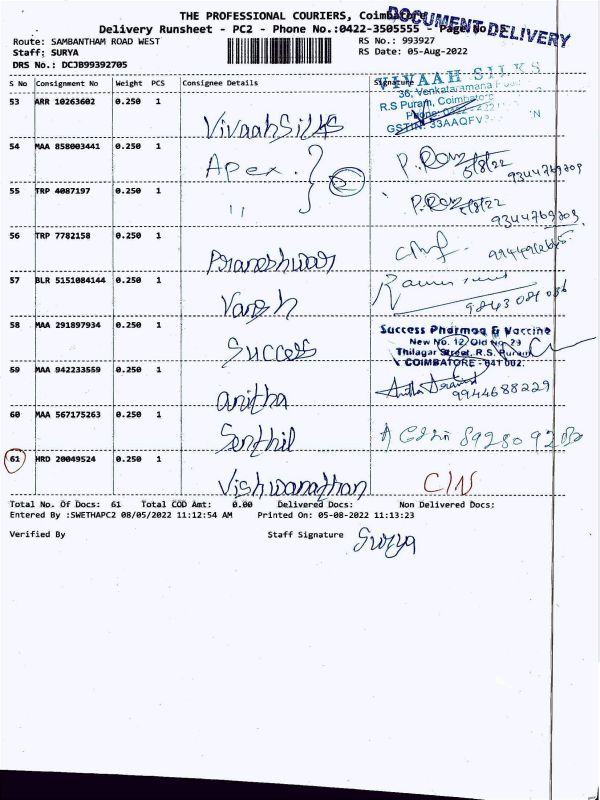 THE PROFESSIONAL COURIERS, Coimbatore
DOCUMENT DELIVERY
Delivery Runsheet - PC2 - Phone No.:0422-3505555 - Page No
Route: SAMBANTHAM ROAD WEST RS No.: 993927
Staff: SURYA RS Date: 05-Aug-2022
DRS No.: DCJB99392705
S No Consignment No Weight PCS Consignee Details Signature
VIVAAH SILKS
36, Venkataramana
R.S Puram, Coimbatore
Phone: 0422
GSTIN: 33AAQFV
53 ARR 10263602 0.250 1 VivaahSilks
54 MAA 858003441 0.250 1 Apex. 5/8/22
9344769209
55 TRP 4087197 0.250 1 " 5/8/22
9344769209
56 TRP 7782158 0.250 1 Praneshwar
57 BLR 5151084144 0.250 1 Vansh
58 MAA 291897934 0.250 1 Success
Success Pharmaa & Vaccine
New No. 12/Old No. 23
Thilagar Street, R.S. Puram
COIMBATORE - 641 002.
59 MAA 942233559 0.250 1 anitha 9944688229
60 MAA 567175263 0.250 1 Senthil
61 HRD 20049524 0.250 1 Vishwanathan C/N
Total No. Of Docs: 61 Total COD Amt: 0.00 Delivered Docs: Non Delivered Docs:
Entered By :SWETHAPC2 08/05/2022 11:12:54 AM Printed On: 05-08-2022 11:13:23
Verified By Staff Signature Surya